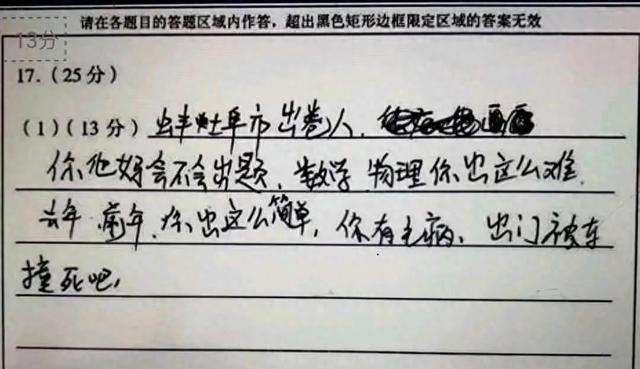 请在各题目的答题区域内作答，超出黑色矩形边框限定区域的答案无效
13分
17.（25分）
（1）（13分）蚌埠市出卷人，
你他妈会不会出题，数学 物理 你出这么难，
去年，前年，你出这么简单，你有毛病，出门被车
撞死吧，